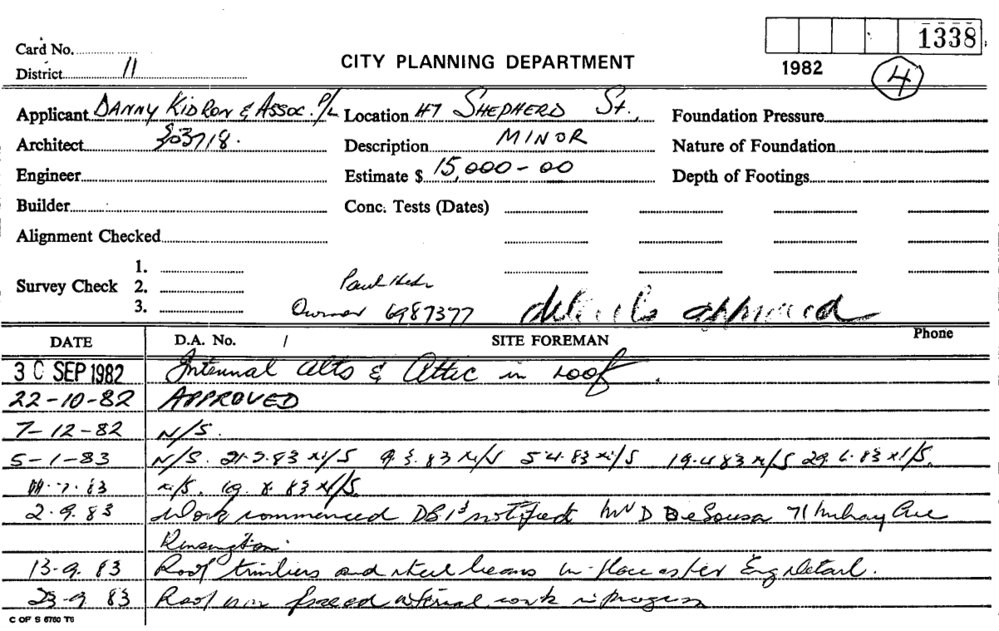 1338
Card No.
District 11
CITY PLANNING DEPARTMENT
1982
4
Applicant DANNY KIDRON & ASSOC. P/L Location 47 SHEPHERD St., Foundation Pressure
Architect 803718. Description MINOR Nature of Foundation
Engineer Estimate $ 15,000-00 Depth of Footings
Builder Conc. Tests (Dates)
Alignment Checked
Survey Check 1.
2. Paul
3. Owner 6987377 details approved
DATE D.A. No. / SITE FOREMAN Phone
30 SEP 1982 Internal alts & Attic in roof.
22-10-82 APPROVED
7-12-82 N/S.
5-1-83 N/S. 21.2.83 N/S 9.3.83 N/S 5.4.83 N/S 19.4.83 N/S 29.6.83 N/S.
.7.83 N/S. 19.8.83 N/S.
2.9.83 Work commenced notified Mr D DeSousa 71 Ave
Kensington.
13.9.83 Roof timbers and steel beams in place as per Eng Detail.
23.9.83 Roof now internal work in progress
C OF S 6760 T6